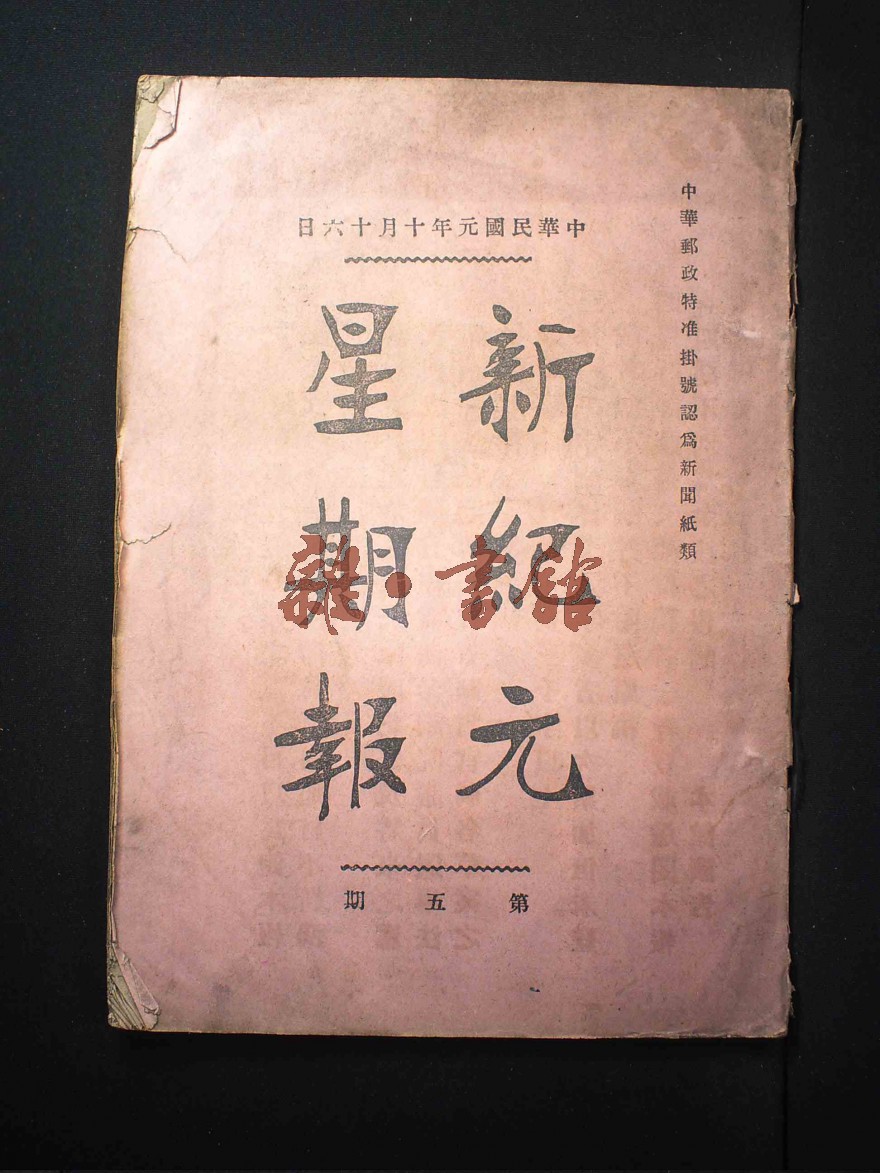 中華郵政特准掛號認爲新聞紙類
中華民國元年十月十六日
新紀元
星期報
第五期
雜·書館